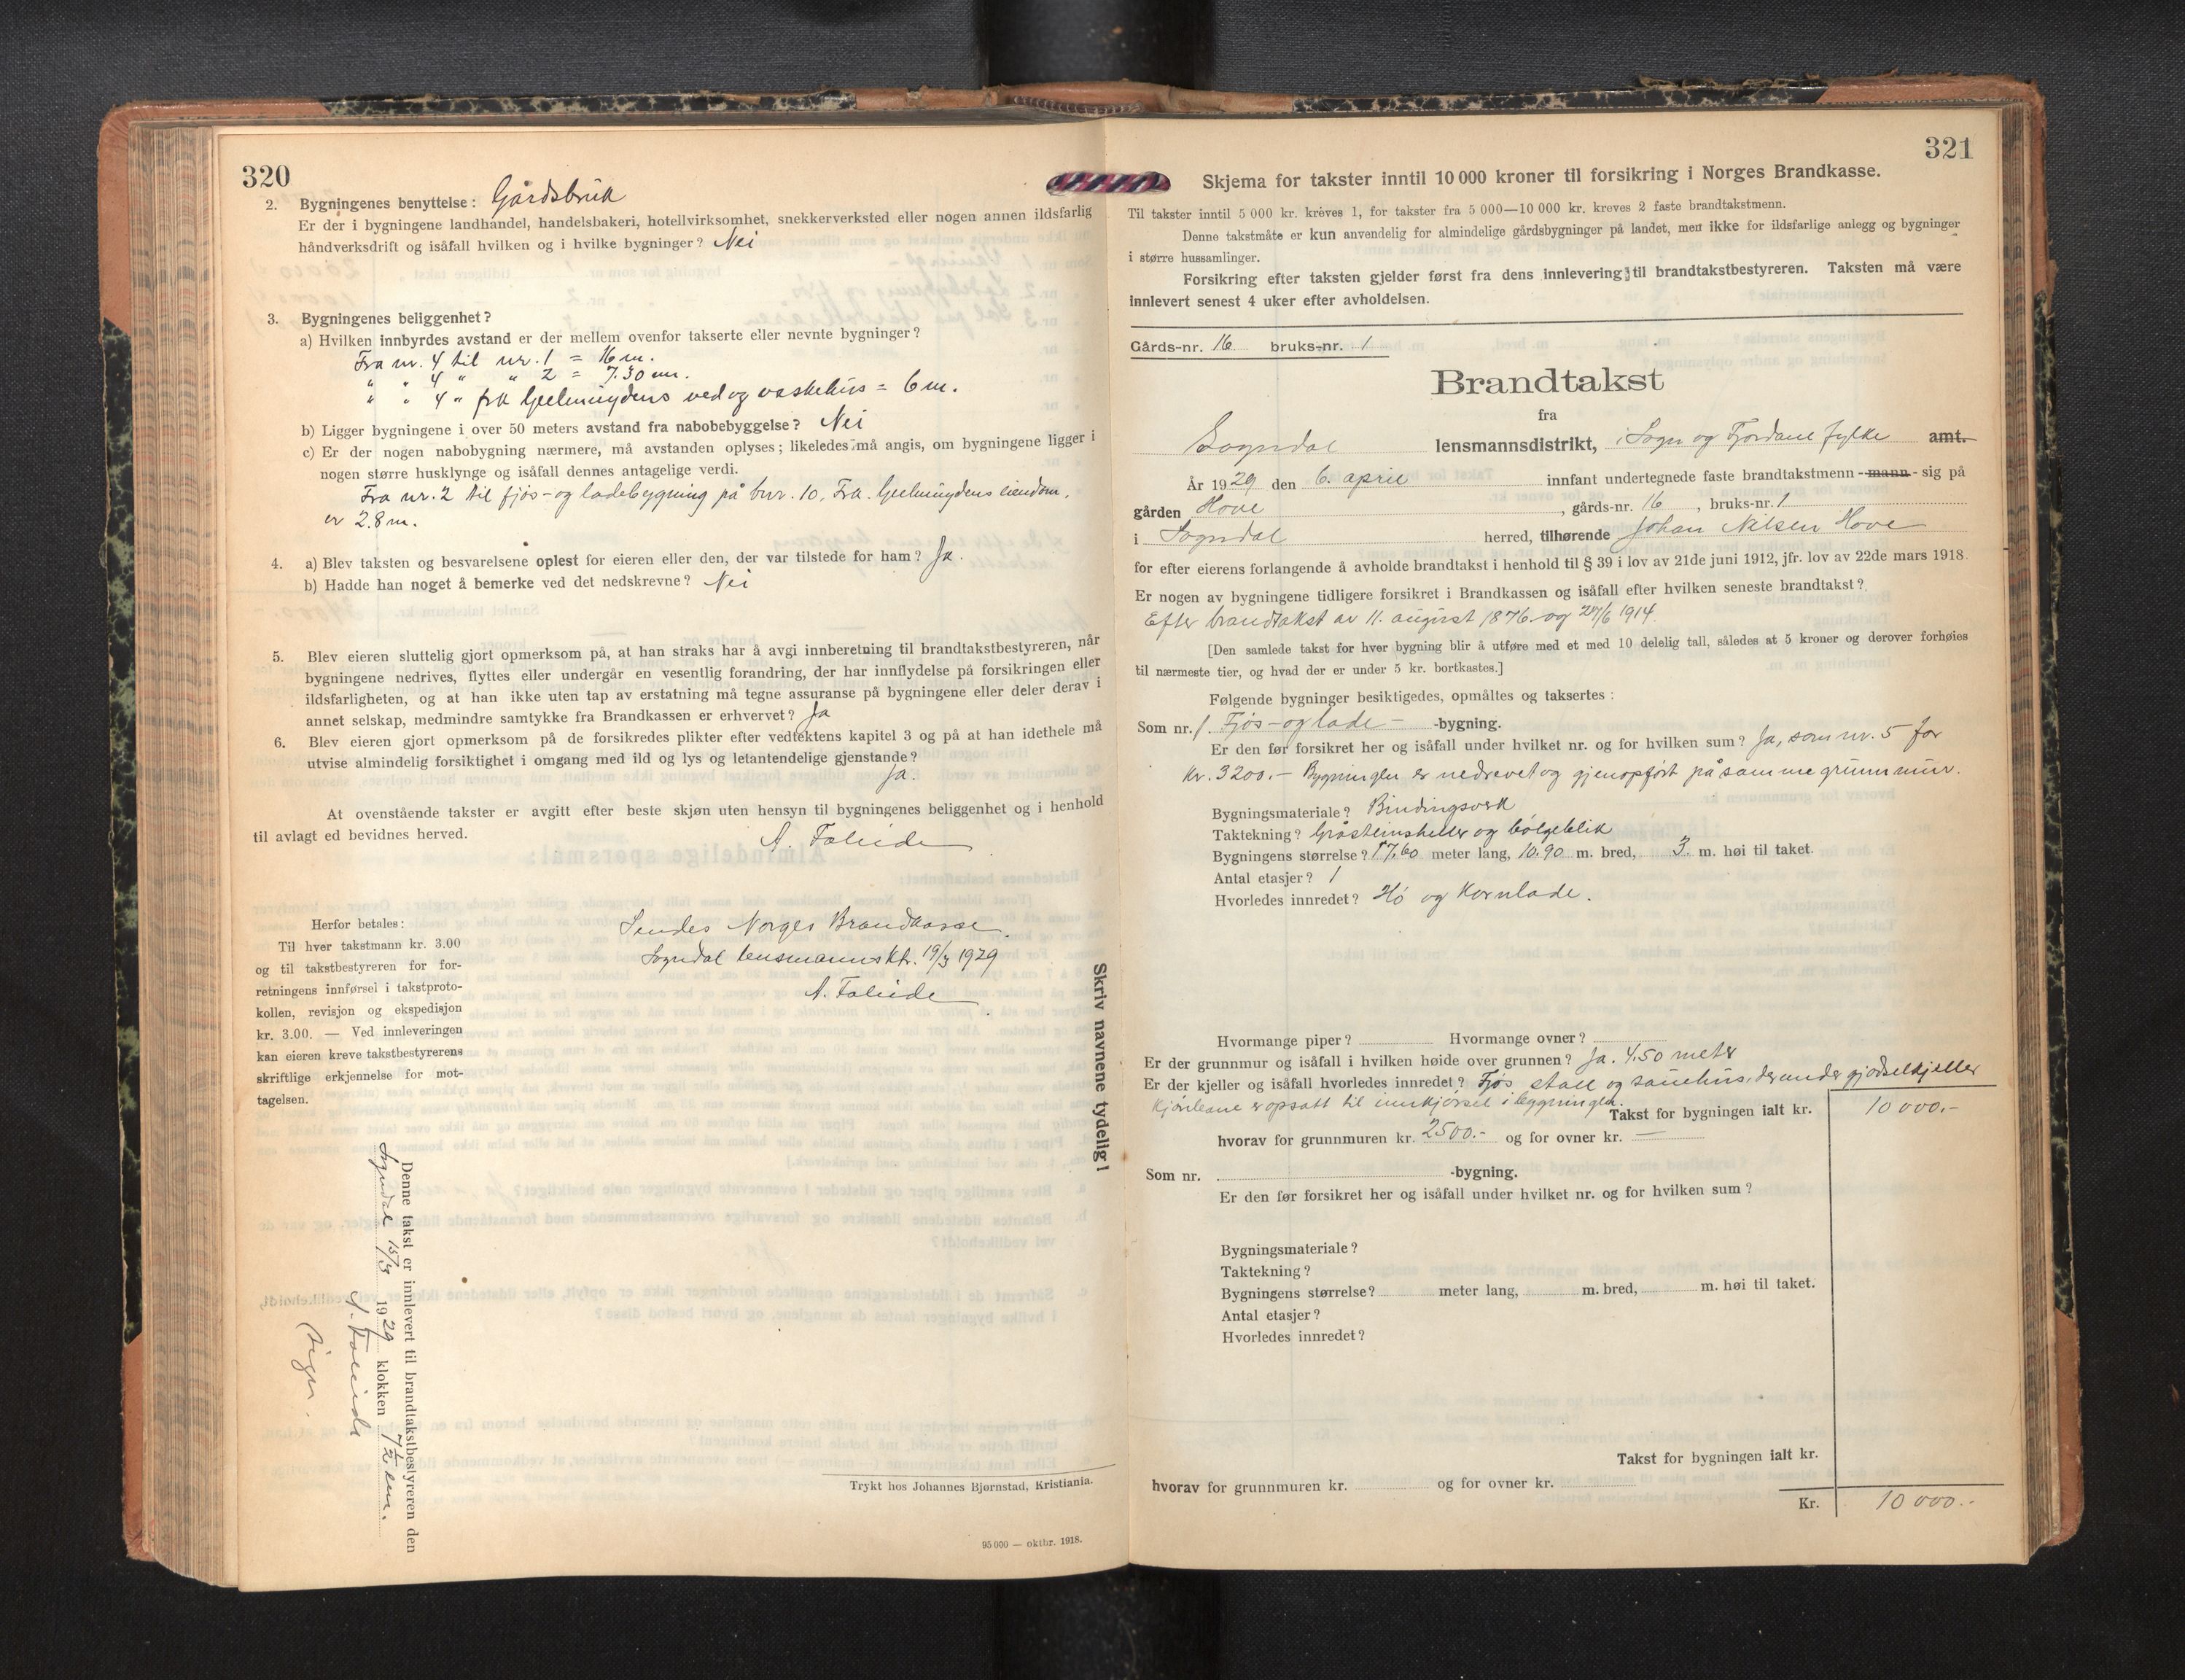 320
2. Bygningenes benyttelse: Gårdsbruk
Er der i bygningene landhandel, handelsbakeri, hotellvirksomhet, snekkerverksted eller nogen annen ildsfarlig
håndverksdrift og isåfall hvilken og i hvilke bygninger? Nei
3. Bygningenes beliggenhet?
a) Hvilken innbyrdes avstand er der mellem ovenfor takserte eller nevnte bygninger?
Fra nr. 4 til nr. 1 = 16 m.
" " 4 " " 2 = 7.30 m.
" " 4 " frk Gjelmuydens ved og vaskehus = 6 m.
b) Ligger bygningene i over 50 meters avstand fra nabobebyggelse? Nei
c) Er der nogen nabobygning nærmere, må avstanden oplyses; likeledes må angis, om bygningene ligger i
nogen større husklynge og isåfall dennes antagelige verdi.
Fra nr. 2 til fjøs- og ladebygning på bnr. 10, Frk. Gjelmuydens eiendom,
er 2.8 m.
4. a) Blev taksten og besvarelsene oplest for eieren eller den, der var tilstede for ham? Ja.
b) Hadde han noget å bemerke ved det nedskrevne? Nei
5. Blev eieren sluttelig gjort opmerksom på, at han straks har å avgi innberetning til brandtakstbestyreren, når
bygningene nedrives, flyttes eller undergår en vesentlig forandring, der har innflydelse på forsikringen eller
ildsfarligheten, og at han ikke uten tap av erstatning må tegne assuranse på bygningene eller deler derav i
annet selskap, medmindre samtykke fra Brandkassen er erhvervet? Ja
6. Blev eieren gjort opmerksom på de forsikredes plikter efter vedtektens kapitel 3 og på at han idethele må
utvise almindelig forsiktighet i omgang med ild og lys og letantendelige gjenstande?
Ja.
At ovenstående takster er avgitt efter beste skjøn uten hensyn til bygningenes beliggenhet og i henhold
til avlagt ed bevidnes herved.
A. Faleide
Herfor betales:
Til hver takstmann kr. 3.00
og til takstbestyreren for for-
retningens innførsel i takstproto-
kollen, revisjon og ekspedisjon
kr. 3.00. — Ved innleveringen
kan eieren kreve takstbestyrerens
skriftlige erkjennelse for mot-
tagelsen.
Sendes Norges Brandkasse.
Sogndal lensmannsktr. 19/3 1929
A. Faleide
Skriv navnene tydelig!
Denne takst er innlevert til brandtakstbestyreren den
Sogndal 15/3 1929 klokken 7 1/2 em.
A. Faleide
sign.
Trykt hos Johannes Bjørnstad, Kristiania.
95 000 — oktbr. 1918.
321
Skjema for takster inntil 10 000 kroner til forsikring i Norges Brandkasse.
Til takster inntil 5 000 kr. kreves 1, for takster fra 5 000—10 000 kr. kreves 2 faste brandtakstmenn.
Denne takstmåte er kun anvendelig for almindelige gårdsbygninger på landet, men ikke for ildsfarlige anlegg og bygninger
i større hussamlinger.
Forsikring efter taksten gjelder først fra dens innlevering til brandtakstbestyreren. Taksten må være
innlevert senest 4 uker efter avholdelsen.
Gårds-nr. 16 bruks-nr. 1
Brandtakst
fra
Sogndal lensmannsdistrikt, i Sogn og Fjordane fylke amt.
År 1929 den 6. april innfant undertegnede faste brandtakstmenn - mann - sig på
gården Hove, gårds-nr. 16, bruks-nr. 1
i Sogndal herred, tilhørende Johan Nilsen Hove
for efter eierens forlangende å avholde brandtakst i henhold til § 39 i lov av 21de juni 1912, jfr. lov av 22de mars 1918.
Er nogen av bygningene tidligere forsikret i Brandkassen og isåfall efter hvilken seneste brandtakst?
Efter brandtakst av 11. august 1876 og 27/6 1914.
[Den samlede takst for hver bygning blir å utføre med et med 10 delelig tall, således at 5 kroner og derover forhøies
til nærmeste tier, og hvad der er under 5 kr. bortkastes.]
Følgende bygninger besiktigedes, opmåltes og taksertes:
Som nr. 1. Fjøs- og lade- -bygning.
Er den før forsikret her og isåfall under hvilket nr. og for hvilken sum? Ja, som nr. 5 for
kr. 3200.- Bygningen er nedrevet og gjenopført på samme grunnmur.
Bygningsmateriale? Bindingsverk
Taktekning? Gråsteinsheller og bølgeblik
Bygningens størrelse? 17.60 meter lang, 10.90 m. bred, 3. m. høi til taket.
Antal etasjer? 1
Hvorledes innredet? Hö og Kornlade.
Hvormange piper? Hvormange ovner?
Er der grunnmur og isåfall i hvilken høide over grunnen? Ja. 4.50 meter
Er der kjeller og isåfall hvorledes innredet? Fjøs stall og sauehus, derunder gjødselkjeller
Kjörebane er opsatt til innkjörsel i byggningen.
Takst for bygningen ialt kr. 10 000.-
hvorav for grunnmuren kr. 2500.- og for ovner kr. —
Som nr. -bygning.
Er den før forsikret her og isåfall under hvilket nr. og for hvilken sum?
Bygningsmateriale?
Taktekning?
Bygningens størrelse? meter lang, m. bred, m. høi til taket.
Antal etasjer?
Hvorledes innredet?
Takst for bygningen ialt kr.
hvorav for grunnmuren kr. og for ovner kr.
Kr. 10 000.-